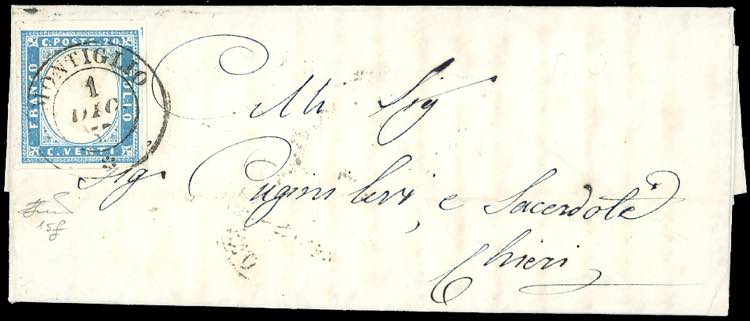 C. POSTE 20
FRANCO BOLLO
C. VENTI
MONTIGLIO
1
DIC
Alli Sig
Sig
Levi, e Sacerdote
Chieri
15f